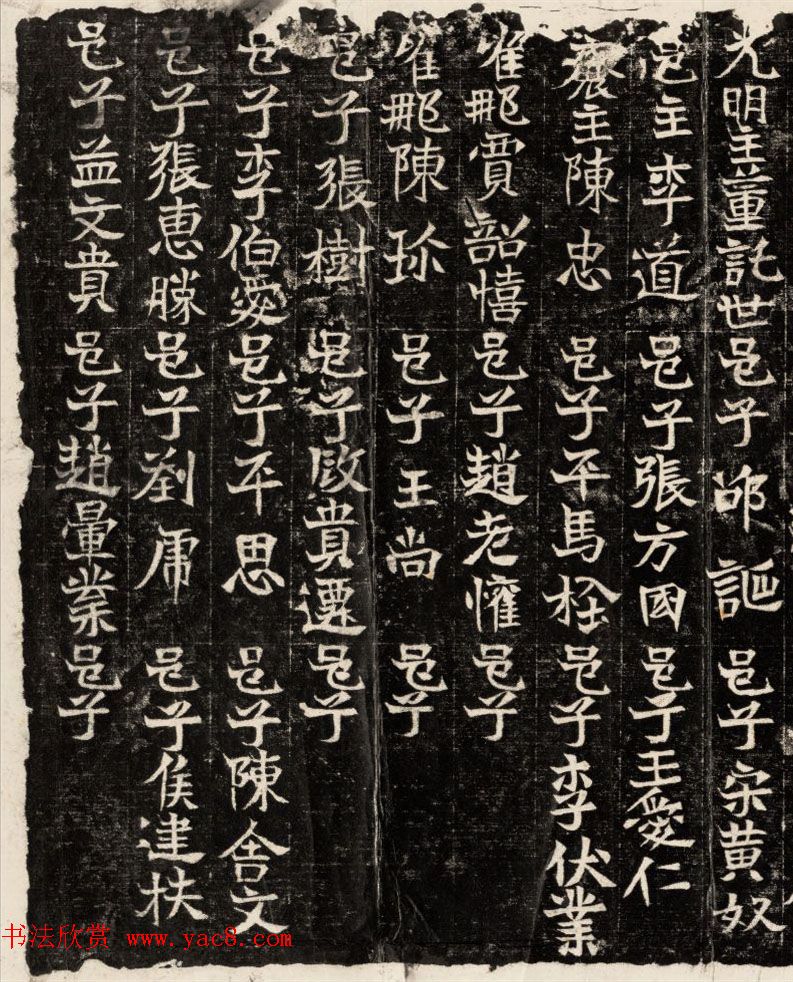 光明主董託世邑子邰䛠邑子宋黄奴
邑主李道邑子張方國邑子王愛仁
齋主陳忠邑子平馬邑子李伏業
唯那賈韶憘邑子趙老懽邑子
唯那陳珎邑子王尚邑子
邑子張樹邑子殷貴遷邑子
邑子李伯愛邑子平思邑子陳舍文
邑子張惠勝邑子劉席邑子侯建扶
邑子益文貴邑子趙暈業邑子
书法欣赏 www.yac8.com